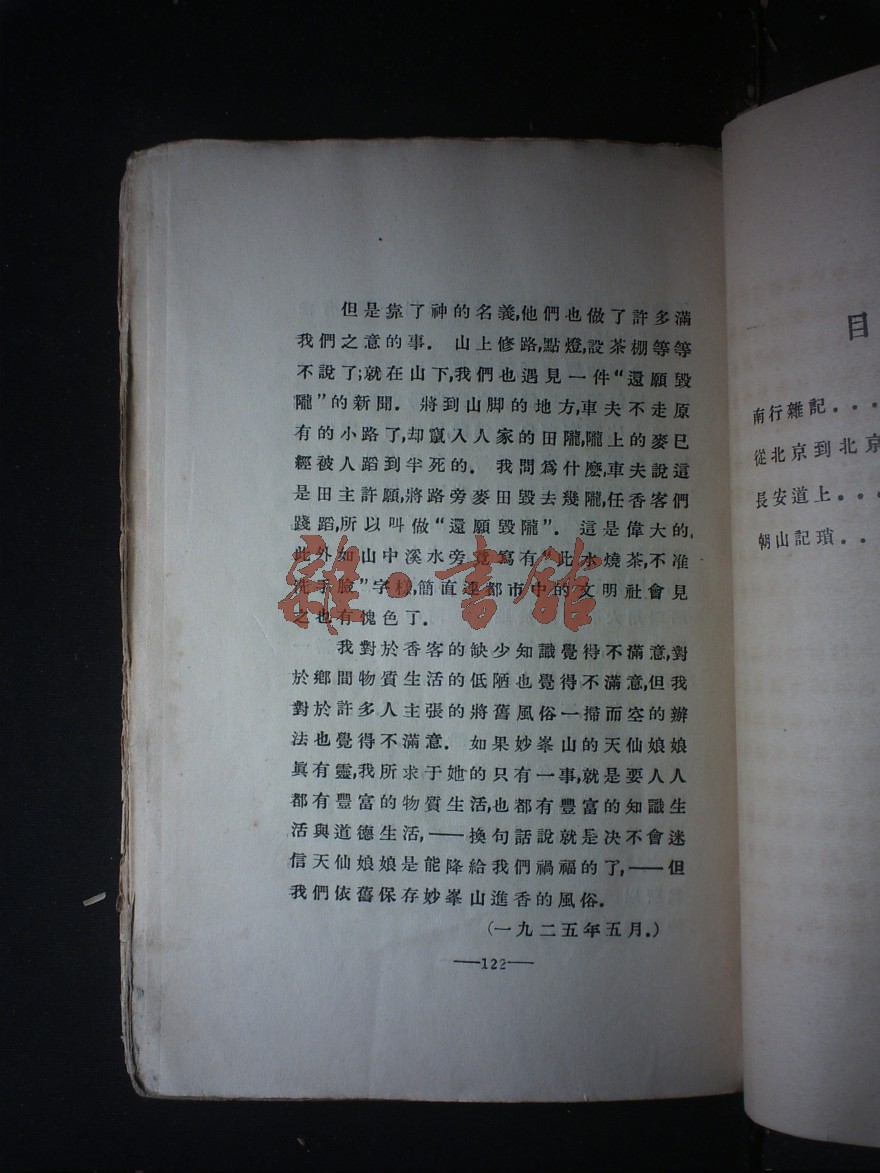 但是靠了神的名義,他們也做了許多滿
我們之意的事. 山上修路,點燈,設茶棚等等
不說了;就在山下,我們也遇見一件“還願毀
隴”的新聞. 將到山脚的地方,車夫不走原
有的小路了,却竄入人家的田隴,隴上的麥已
經被人蹈到半死的. 我問爲什麽,車夫說這
是田主許願,將路旁麥田毀去幾隴,任香客們
踐蹈,所以叫做“還願毀隴”. 這是偉大的.
此外如山中溪水旁竟寫有“此水燒茶,不准
洗手臉”字樣,簡直連都市中的文明社會見
之也有愧色了.
我對於香客的缺少知識覺得不滿意,對
於鄉間物質生活的低陋也覺得不滿意,但我
對於許多人主張的將舊風俗一掃而空的辦
法也覺得不滿意. 如果妙峯山的天仙娘娘
眞有靈,我所求于她的只有一事,就是要人人
都有豐富的物質生活,也都有豐富的知識生
活與道德生活,——換句話說就是决不會迷
信天仙娘娘是能降給我們禍福的了,——但
我們依舊保存妙峯山進香的風俗.
(一九二五年五月.)
——122——
雜·書館
目
南行雜記...
從北京到北京
長安道上...
朝山記瑣...